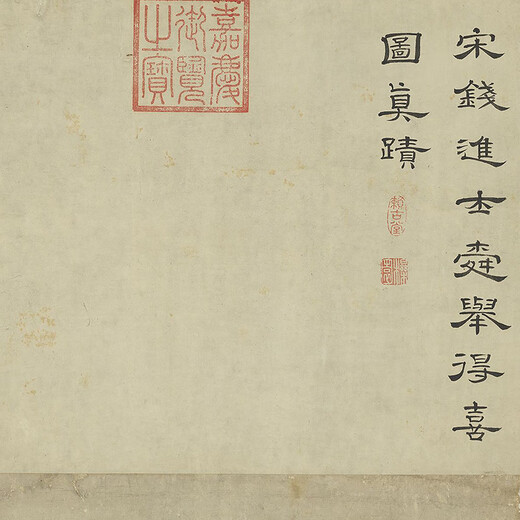 宋錢進士舜舉得喜
圖真蹟
賴古堂
嘉慶
御覽
之寶